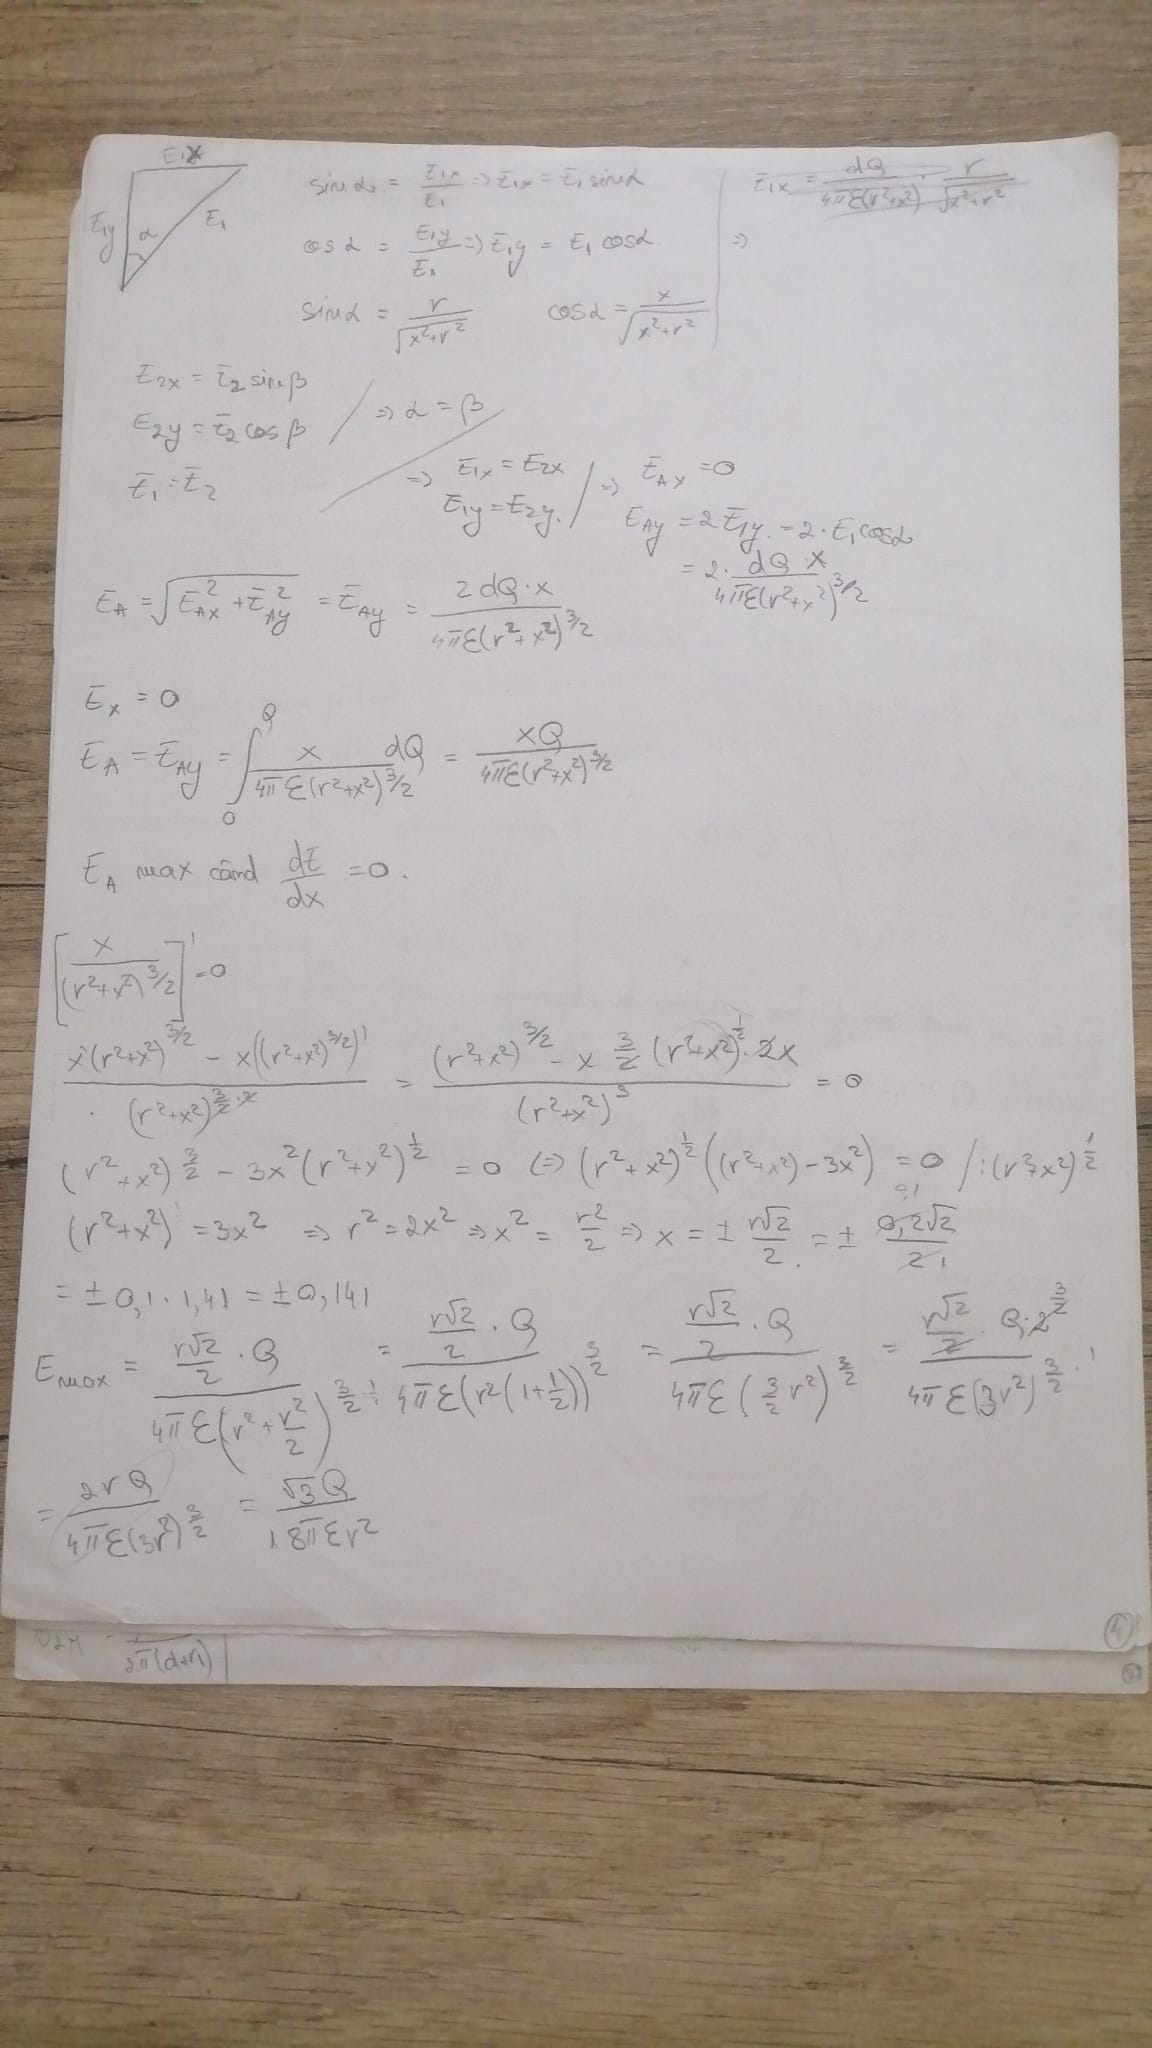 E₁x
E₁y α E₁
sin α = E₁x/E₁ => E₁x = E₁ sin α
E₁x = dQ/(4πε(r²+x²)) · r/√(x²+r²)
cos α = E₁y/E₁ => E₁y = E₁ cos α
=>
sin α = r/√(x²+r²) cos α = x/√(x²+r²)
E₂x = E₂ sin β
E₂y = E₂ cos β / => α = β
E₁ = E₂ => E₁x = E₂x / => E_Ax = 0
E₁y = E₂y. E_Ay = 2E₁y. = 2·E₁ cos α
= 2· dQ·x/(4πε(r²+x²)^(3/2))
E_A = √(E_Ax² + E_Ay²) = E_Ay = 2dQ·x/(4πε(r²+x²)^(3/2))
E_x = 0
E_A = E_Ay = ∫₀^Q x dQ/(4πε(r²+x²)^(3/2)) = xQ/(4πε(r²+x²)^(3/2))
E_A max când dE/dx = 0.
[x/(r²+x²)^(3/2)]' = 0
(x'(r²+x²)^(3/2) - x((r²+x²)^(3/2))')/(r²+x²)^(3/2·2) = ((r²+x²)^(3/2) - x 3/2 (r²+x²)^(1/2)·2x)/(r²+x²)³ = 0
(r²+x²)^(3/2) - 3x²(r²+x²)^(1/2) = 0 (=) (r²+x²)^(1/2)((r²+x²)-3x²) = 0 /:(r²+x²)^(1/2)
(r²+x²) = 3x² => r² = 2x² => x² = r²/2 => x = ± r√2/2. = ± 0,2√2/2 0,1 1
= ±0,1·1,41 = ±0,141
E_max = (r√2/2 · Q)/(4πε(r²+r²/2)^(3/2)) = (r√2/2 · Q)/(4πε(r²(1+1/2))^(3/2)) = (r√2/2 · Q)/(4πε(3/2 r²)^(3/2)) = (r√2/2 Q·2^(3/2))/(4πε(3r²)^(3/2))
= 2rQ/(4πε(3r²)^(3/2)) = √3Q/(18πεr²)
4
2π(d+r₁)